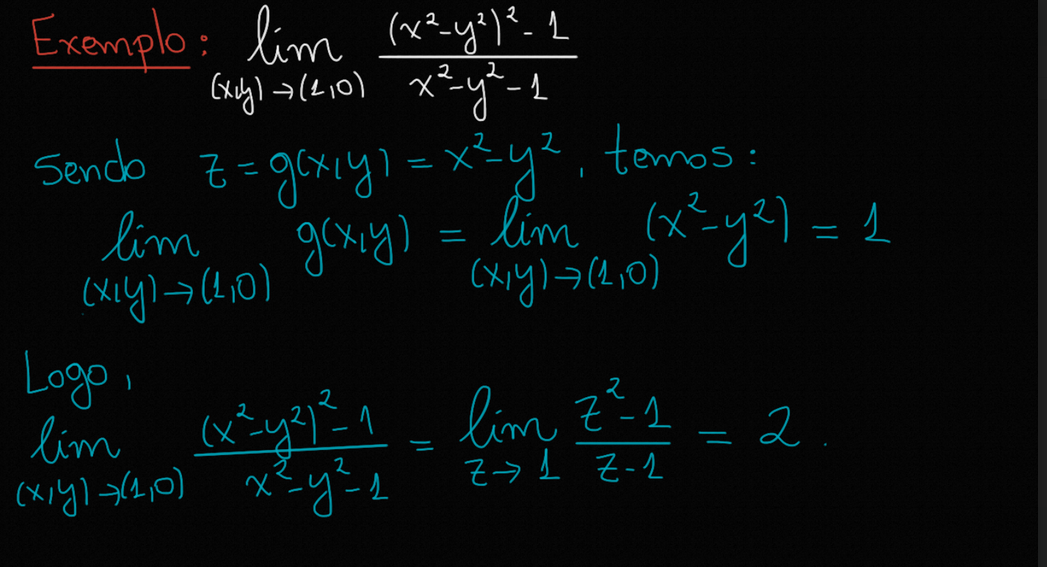 Exemplo: lim (x,y)→(1,0) ((x²-y²)² - 1)/(x²-y²-1)
Sendo z = g(x,y) = x²-y², temos:
lim (x,y)→(1,0) g(x,y) = lim (x,y)→(1,0) (x²-y²) = 1
Logo,
lim (x,y)→(1,0) ((x²-y²)² - 1)/(x²-y²-1) = lim z→1 (z²-1)/(z-1) = 2.